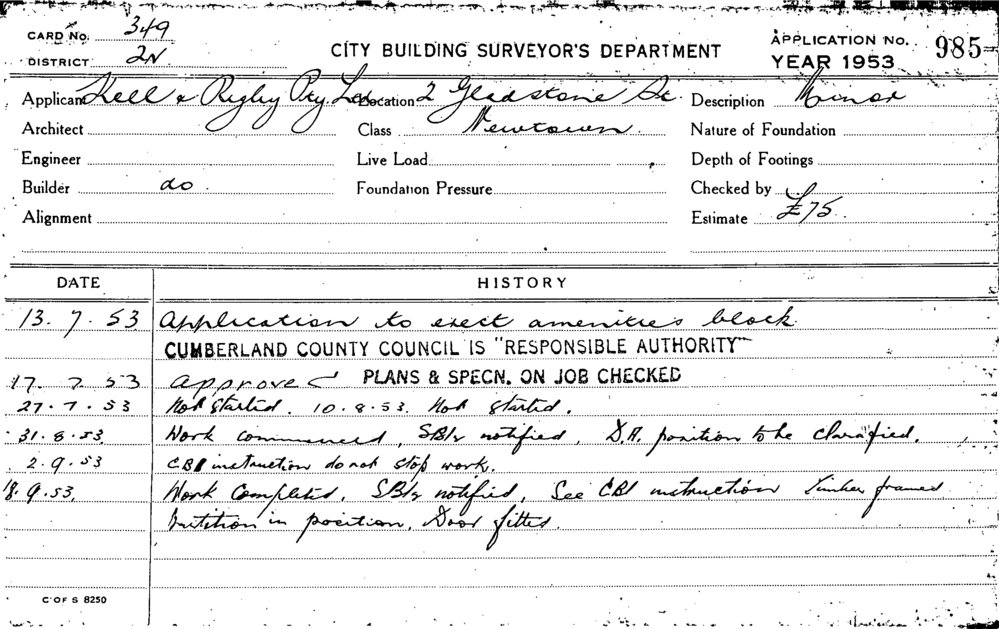 CARD No. 349
DISTRICT 2N
CITY BUILDING SURVEYOR'S DEPARTMENT
APPLICATION No. 985
YEAR 1953
Applicant Kell & Rigby Pty Ltd Location 2 Gladstone St. Description Minor
Architect Class Newtown Nature of Foundation
Engineer Live Load Depth of Footings
Builder do Foundation Pressure Checked by
Alignment Estimate £75
DATE HISTORY
13.7.53 Application to erect amenities block
CUMBERLAND COUNTY COUNCIL IS "RESPONSIBLE AUTHORITY"
17.7.53 Approved PLANS & SPECN. ON JOB CHECKED
27.7.53 Not started. 10.8.53. Not started.
31.8.53. Work commenced, notified, D.A. position to be clarified.
2.9.53 CBI instruction do not stop work.
18.9.53. Work Completed, notified, See CBI instruction Timber framed
in position. Door fitted.
C OF S 8250